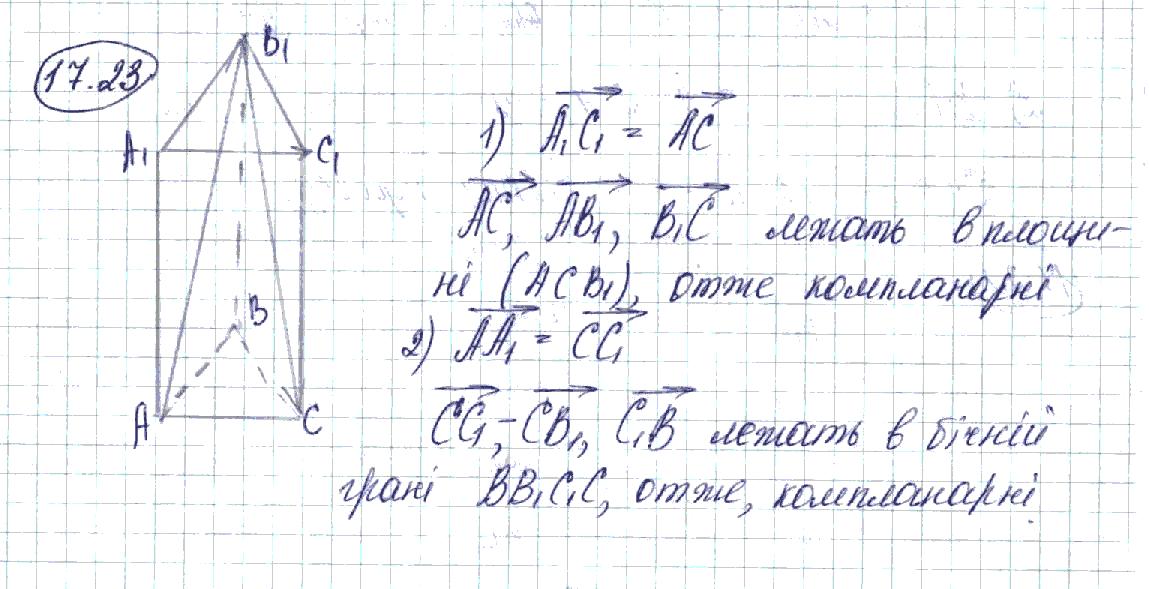 17.23
B₁
A₁
C₁
B
A
C
1) A₁C₁ = AC
AC, AB₁, B₁C лежать в площи-
ні (ACB₁), отже компланарні
2) AA₁ = CC₁
CC₁, CB₁, C₁B лежать в бічній
грані BB₁C₁C, отже, компланарні